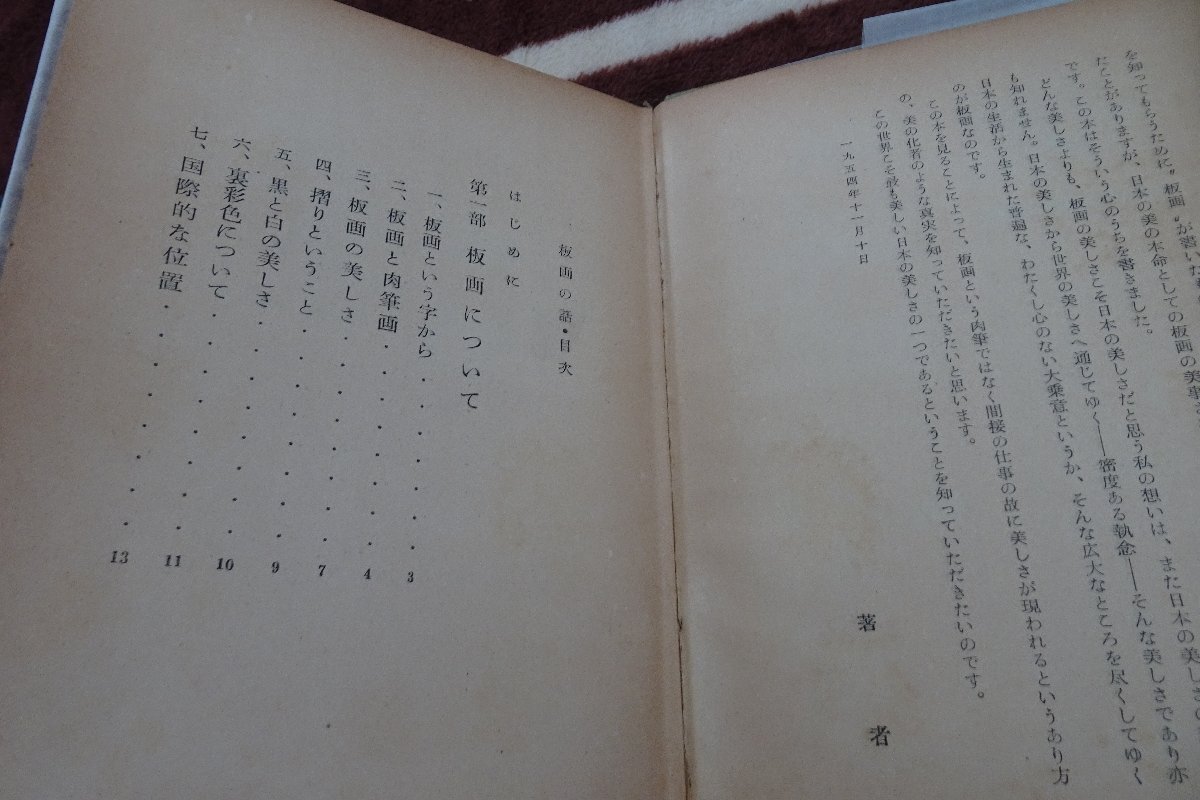 を知ってもらうために〝板画〟が書いた
たことがありますが、日本の美の本命としての板画の美事さ
です。この本はそういう心のうちを書きました。
どんな美しさよりも、板画の美しさこそ日本の美しさだと思う私の想いは、また日本の美しさの
も知れません。日本の美しさから世界の美しさへ通じてゆく――密度ある執念――そんな美しさであり亦
日本の生活から生まれた普遍な、わたくし心のない大乗意というか、そんな広大なところを尽くしてゆく
のが板画なのです。
この本を見ることによって、板画という肉筆ではなく間接の仕事の故に美しさが現われるというあり方
の、美の化者のような真実を知っていただきたいと思います。
この世界こそ最も美しい日本の美しさの一つであるということを知っていただきたいのです。
一九五四年十一月十日
著者
板画の話・目次
はじめに
第一部 板画について
一、板画という字から・・・・・3
二、板画と肉筆画・・・・・4
三、板画の美しさ・・・・・・7
四、摺りということ・・・・・・9
五、黒と白の美しさ・・・・・・10
六、裏彩色について・・・・・・11
七、国際的な位置・・・・・・・13